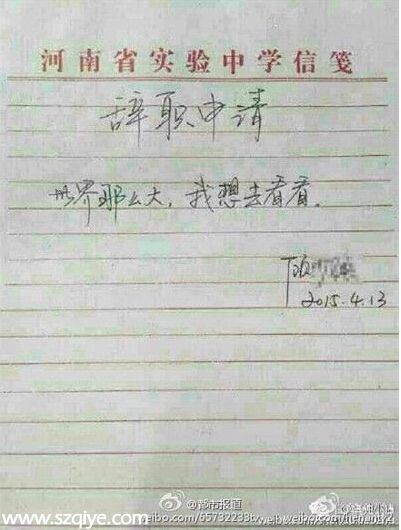 河南省实验中学信笺
辞职申请
世界那么大，我想去看看。
顾
2015.4.13
www.szqiye.com
@都市报道
weibo.com/65732233tv